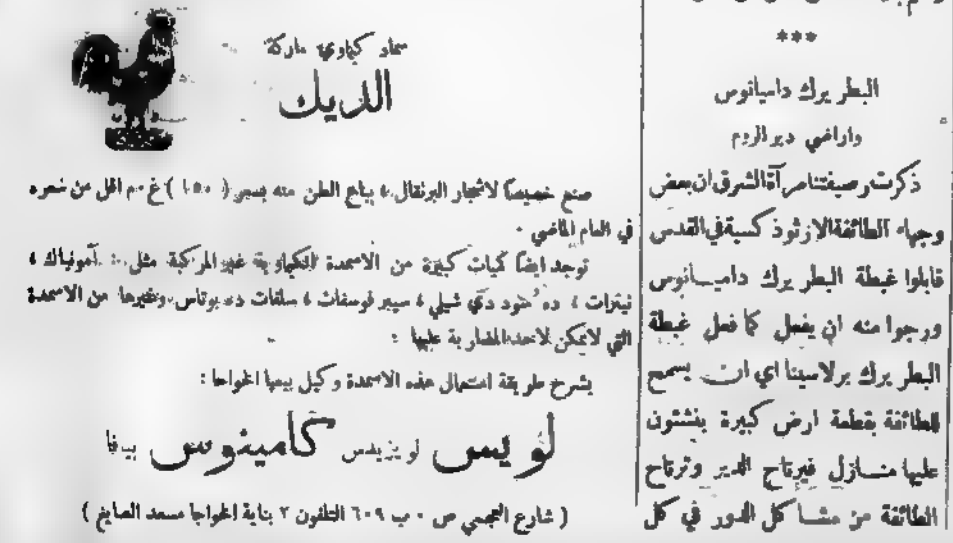 ***
البطريرك داميانوس
واراضي دير الروم
ذكرت رصيفتنا مرآة الشرق ان بعض
وجهاء الطائفة الارثوذكسية في القدس
قابلوا غبطة البطريرك داميانوس
ورجوا منه ان يفعل كما فعل غبطة
البطريرك برلاسينا اي ان يسمح
للطائفة بقطعة ارض كبيرة ينشئون
عليها منازل فيرتاح الدير وترتاح
الطائفة من مشاكل الدور في كل
سماد كيماوي ماركة
الديك
صنع خصيصاً لاشجار البرتقال، يباع الطن منه بسعر (١٥٠) غ.م اقل من سعره
في العام الماضي.
توجد ايضاً كميات كبيرة من الاسمدة الكيماوية غير المركبة مثل: آمونياك،
نيترات، ده صود دي شيلي، سيبر فوسفات، سلفات ده بوتاس، وغيرها من الاسمدة
التي لا يمكن لاحد المضاربة عليها:
يشرح طريقة استعمال هذه الاسمدة وكيل بيعها الخواجا:
لويس لويزيدس كامينوس بيافا
(شارع العجمي ص. ب ٦٠٩ التلفون ٢ بناية الخواجا مسعد الصايغ)